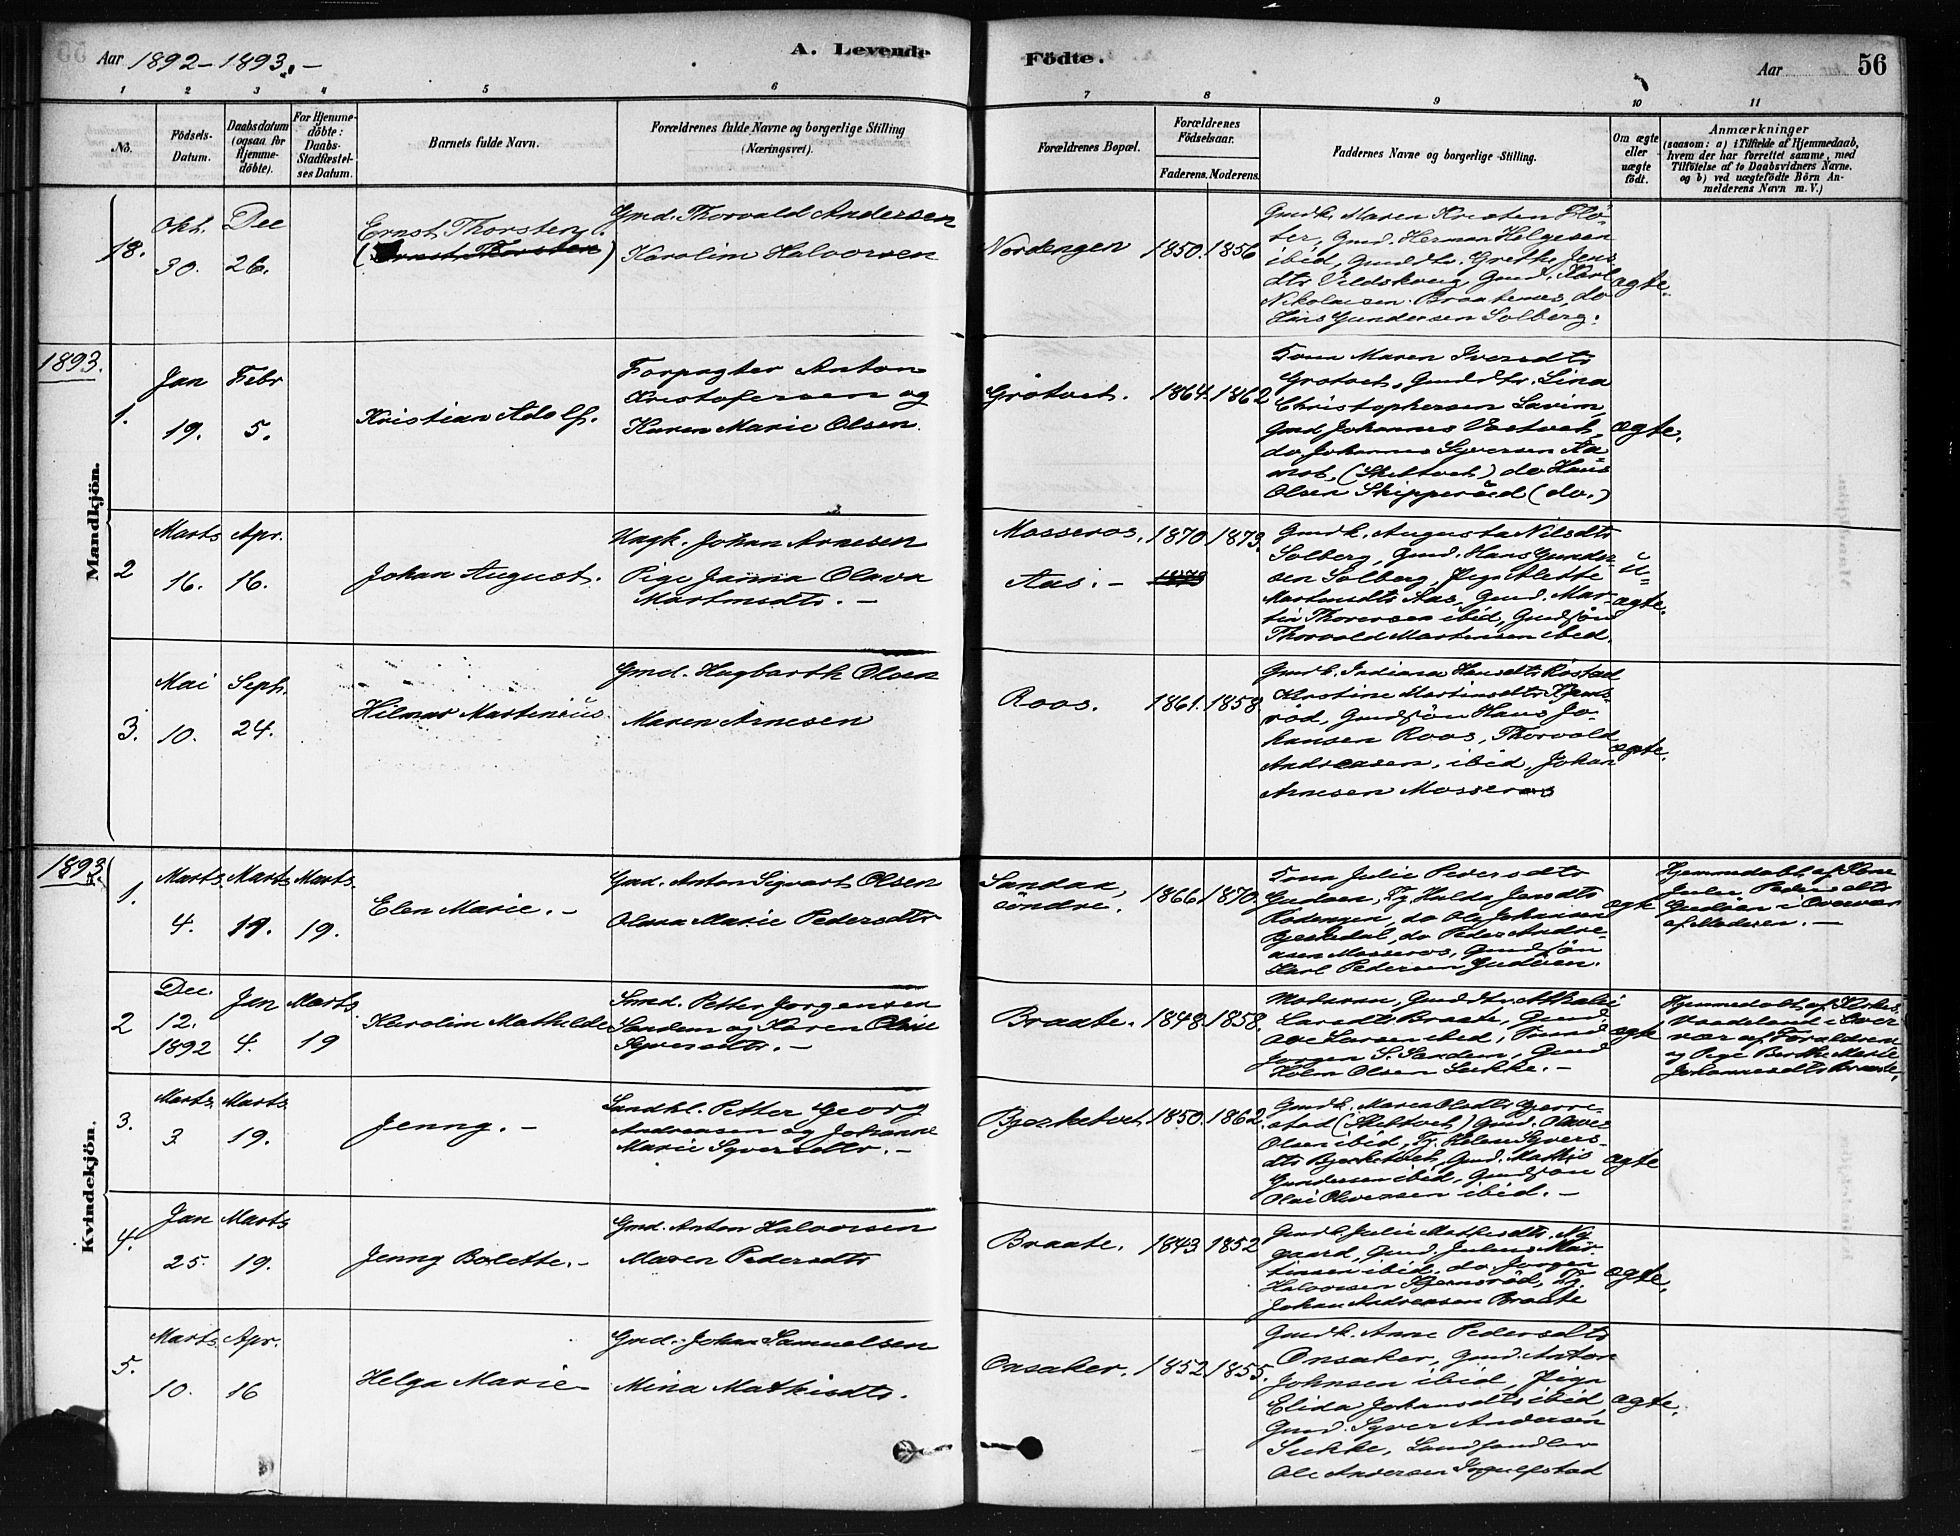 Aar 1892-1893.-
A. Levende
Födte.
Aar
56
1 2 3 4 5 6 7 8 9 10 11
No.
Födsels-
Datum.
Daabsdatum
(ogsaa for
Hjemme-
döbte).
For Hjemme-
döbte:
Daabs-
Stadfæstel-
ses Datum.
Barnets fulde Navn.
Forældrenes fulde Navne og borgerlige Stilling
(Næringsvei).
Forældrenes Bopæl.
Forældrenes
Födselsaar.
Faderens. Moderens.
Faddernes Navne og borgerlige Stilling.
Om ægte
eller
uægte
födt.
Anmærkninger
(saasom: a) i Tilfælde af Hjemmedaab,
hvem der har forrettet samme, med
Tilföielse af to Daabsvidners Navne.
og b) ved uægtefödte Börn An-
melderens Navn m. V.)
Mandkjön.
18.
Okt.
30.
Dec
26.
Ernst Thorsten.
(Ernst Thorsten)
Gmd. Thorvald Andersen
Karolim Halvorsen
Nordengen
1850. 1856
Gmdk. Maren Kristen Flö-
ter, Gmd. Herman Helgesen
ibid, Gmddtr. Grethe Jens
dtr Vildskoug, Gmd. Karl
Nikolaisen Braatenes, do
Hans Gundersen Solberg.
ægte.
1893.
1.
Jan
19.
Febr
5.
Kristian Adolf.
Forpagter Anton
Kristofersen og
Karen Marie Olsen.
Grötvet.
1864. 1862
Kona Maren Iversdtr
Grotvet, Gmddtr. Lina
Christophersen
Gmd Johannes
do Johannes Syversen Aa-
mot, (Skiltvet) do Hans
Olsen Skipperöed (do.)
ægte.
2
Marts
16.
Apr.
16.
Johan August.
Ungk. Johan Arnesen
Pige Janna Olava
Martinsdtr. -
Mosseros.
Aas. -
1870 1873.
1873
Gmdk. Augusta Nilsdtr
Solberg, Gmd. Hans Gunder-
sen Solberg, Pige Alette
Martinsdtr Aas, Gmd. Mar-
tin Thoresen ibid, Gmdsön
Thorvald Martinsen ibid.
u-
ægte.
3.
Mai
10.
Sept.
24.
Hilmar Martinius
Gmd. Hagbarth Olsen
Maren Arnesen
Roos.
1861. 1858.
Gmdk. Indiana Hansdtr Röstad
Kristine Martinsdtr Kjens-
röd, Gmdsön Hans Jo-
hansen Roos, Thorvald
Andreasen, ibid, Johan
Arnesen Mosseros
ægte.
Kvindekjön.
1893.
1.
Marts
4.
Marts
19.
Marts.
19.
Elen Marie. -
Gmd. Anton Sigvart Olsen
Olava Marie Pedersdtr
Sandaa,
söndre.
1866. 1870.
Kona Julie Pedersdtr
Gudöen, Tj. Hulda Jensdtr
Rödengen, do Ole Johansen
Bjerkedal, do Peder Andre-
asen Mosseros, Gmdsön
Karl Pedersen Gudöen.
ægte
Hjemmedöbt af Kone
Julie Pedersdtr
Gudöen i Overvær
af Moderen. -
2
Dec.
12.
1892
Jan
4.
Marts
19
Karolim Mathilde
Smed. Petter Jorgensen
Sandem og Karen Oline
Syversdtr. -
Braate.
1848. 1858.
Moderen, Gmddtr Athalie
Larsdtr Braate, Gmd
Ole Larsen ibid, Smed
Jorgen S. Sandem, Gmd
Holm Olsen Sukke. -
ægte
Hjemmedöbt af
Vaadeland i Over
vær af Forældrene
og Pige Berthe Marie
Johannesdtr Braate.
3.
Marts
3
Marts
19.
Jenny. -
Landhl. Petter Georg
Andreasen og Johanne
Marie Syversdtr. -
Bjerketvet
1850. 1862.
Gmdk. Maren Olsdtr Gjerre-
stad (Skiltvet) Gmd. Olaves
Olsen ibid, Tj. Helene Syvers-
dtr Bjerketvet, Gmd. Mathis
Gundersen ibid, Gmdsön
Olai Oliversen ibid. -
ægte
4.
Jan
25.
Marts
19.
Jenny Bolette. -
Gmd. Anton Halvorsen
Maren Pedersdtr
Braate.
1843. 1852
Gmdk. Julie Mathisdtr. Ny-
gaard, Gmd. Julius Mar-
tinsen ibid, do Jorgen
Halvorsen Kjensröd, Tj.
Johan Andreasen Braate
ægte.
5.
Marts
10.
Apr.
16
Helga Marie
Gmd. Johan Samuelsen
Mina Mathisdtr.
Onsaker.
1852. 1855.
Gmdk. Anne Pedersdtr
Onsaker, Gmd. Anton
Johnsen ibid, Pige
Elida Johansdtr ibid,
Gmd. Syver Andersen
Sukke, Landhandler
Ole Andersen Ingulfstad
ægte.